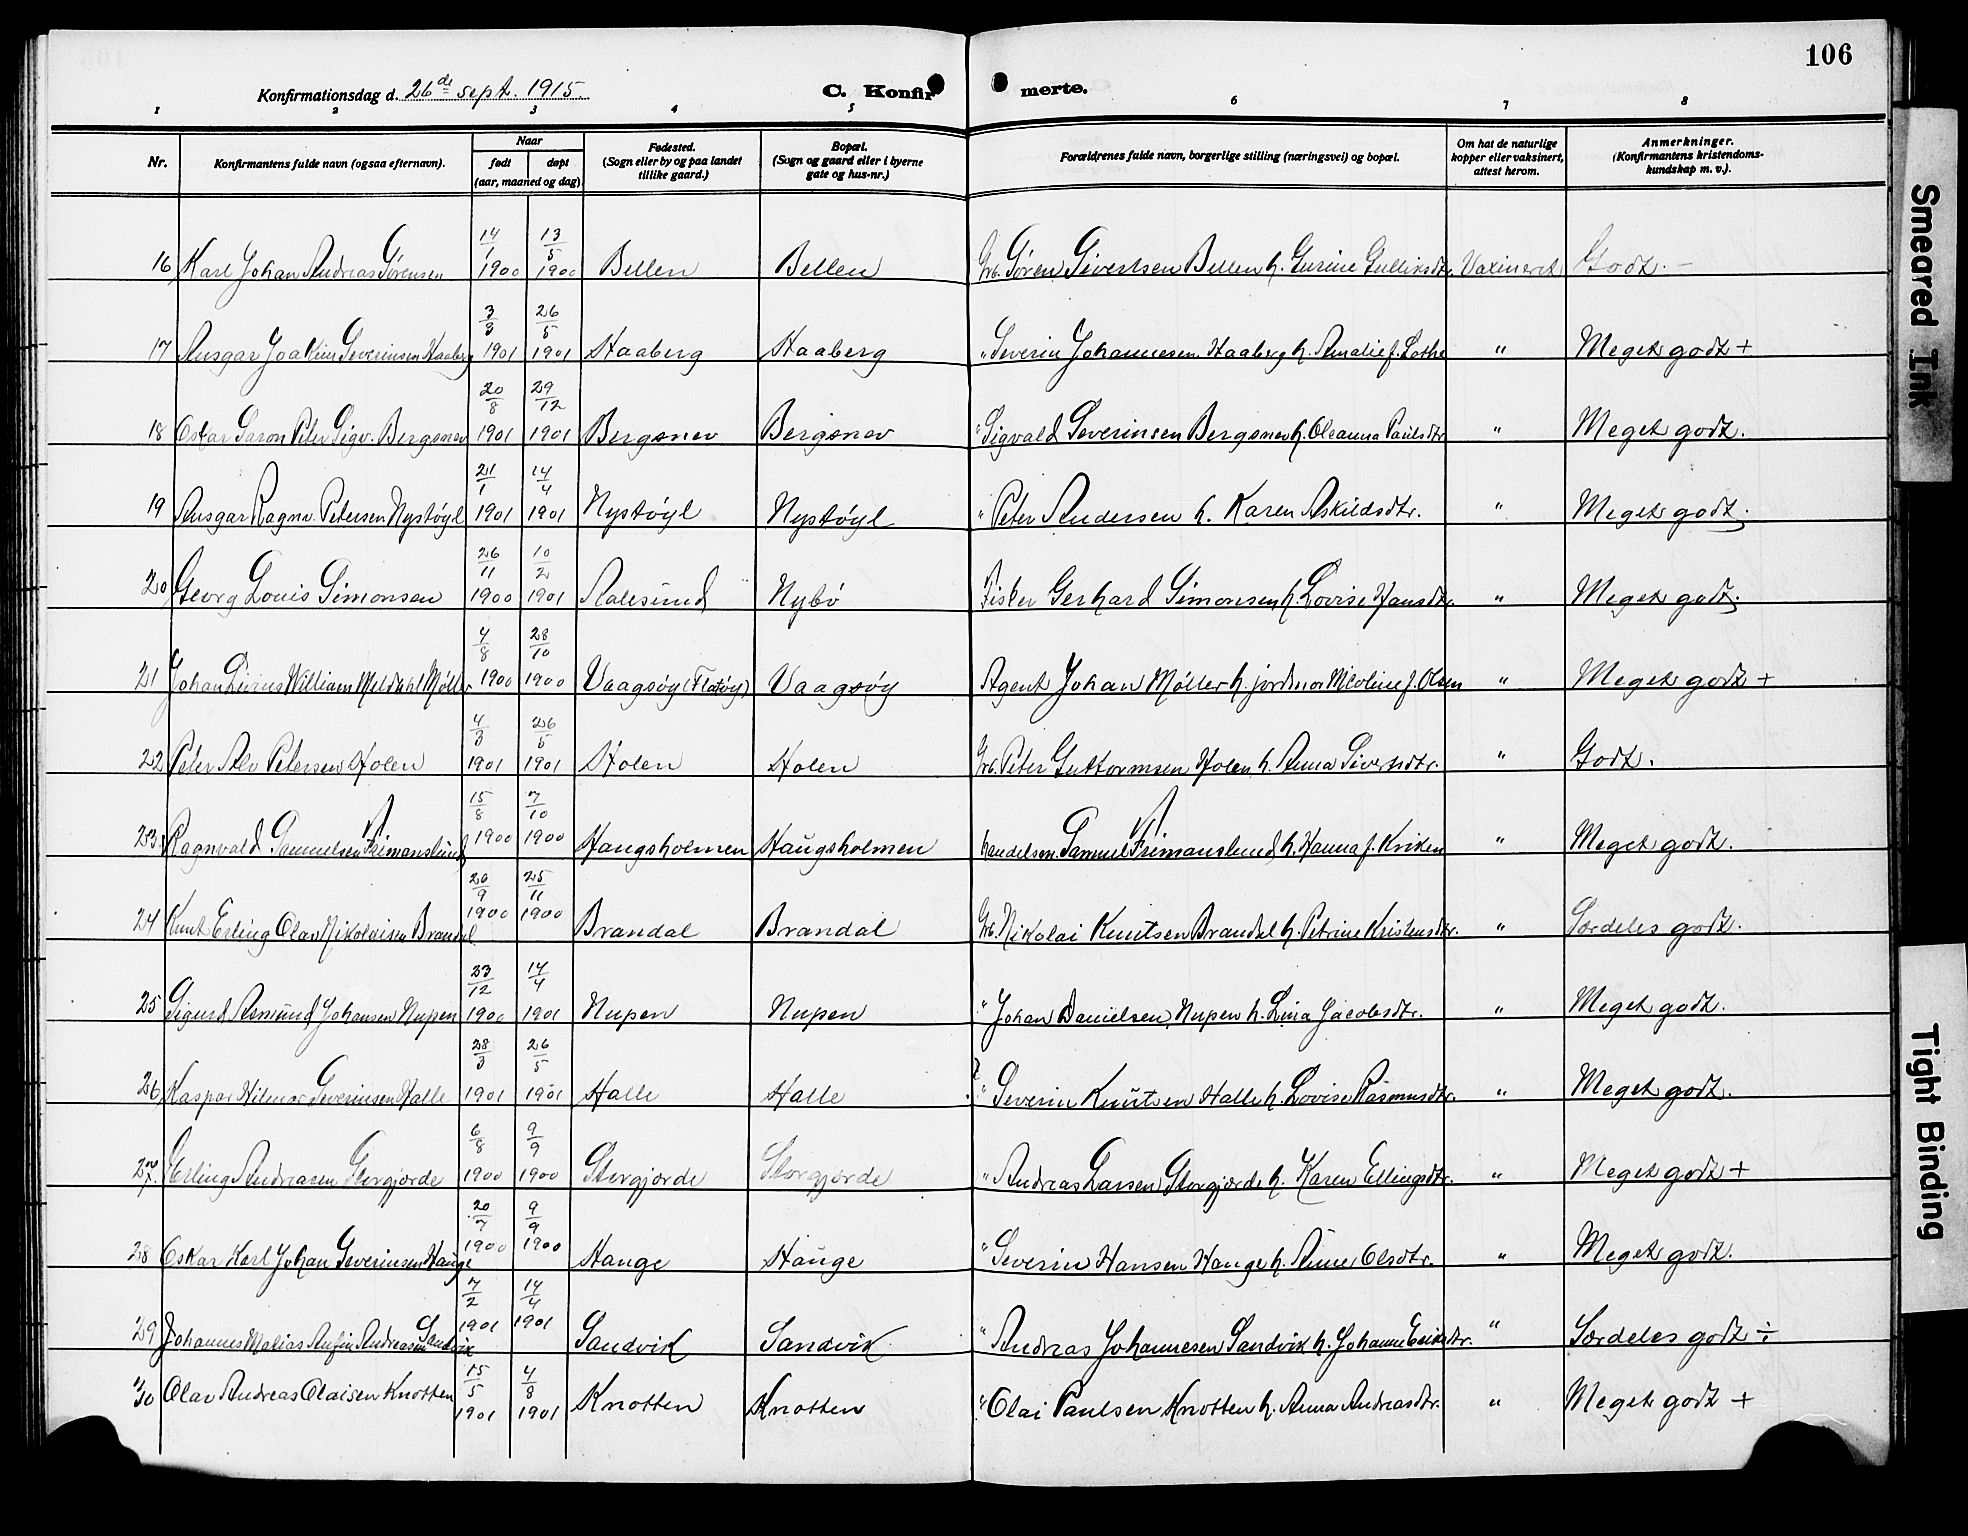 106
Konfirmationsdag d. 26de sept. 1915.
C. Konfirmerte.
1 2 3 4 5 6 7 8
Nr.
Konfirmantens fulde navn (ogsaa efternavn).
Naar
født
døpt
(aar, maaned og dag)
Fødested.
(Sogn eller by og paa landet
tillike gaard.)
Bopæl.
(Sogn og gaard eller i byerne
gate og hus-nr.)
Forældrenes fulde navn, borgerlige stilling (næringsvei) og bopæl.
Om hat de naturlige
kopper eller vaksinert,
attest herom.
Anmerkninger.
(Konfirmantens kristendoms-
kundskap m. v.).
16 Karl Johan Andreas Sørensen 14/1 1900 13/5 1900 Bellen Bellen Grb. Søren Sivertsen Bellen h. Gurine Gulliksdtr. Vaxineret Godt. –
17 Ansgar Joakim Severinsen Haaberg 3/3 1901 26/5 1901 Haaberg Haaberg " Severin Johannesen Haaberg h. Amalie f. Lothe " Meget godt +
18 Oskar Saron Peter Sigv. Bergsnev 20/8 1901 29/12 1901 Bergsnev Bergsnev " Sigvald Severinsen Bergsnev h. Oleanna Paulsdtr " Meget godt.
19 Ansgar Ragnv. Petersen Nystøyl 21/1 1901 14/4 1901 Nystøyl Nystøyl " Peter Andersen h. Karen Askildsdtr. " Meget godt.
20 Georg Louis Simonsen 26/11 1900 10/2 1901 Aalesund Nybø Fisker Gerhard Simonsen h. Lovise Hansdtr. " Meget godt.
21 Johan Livius William Meldahl Møller 4/8 1900 28/10 1900 Vaagsøy (Flatøy) Vaagsøy Agent Johan Møller h. jordmor Nicoline f. Olsen " Meget godt +
22 Peter Alv Petersen Holen 4/3 1901 26/5 1901 Holen Holen Grb. Peter Guttormsen Holen h. Anna Sivertsdtr. " Godt.
23 Ragnvald Samuelsen Frimanslund 15/8 1900 7/10 1900 Haugsholmen Haugsholmen handelsm. Samuel Frimanslund h. Hanna f. Kriken " Meget godt.
24 Knut Erling Olav Nikolaisen Brandal 26/9 1900 25/11 1900 Brandal Brandal Grb. Nikolai Knutsen Brandal h. Petrine Kristensdtr. " Særdeles godt.
25 Sigurd Asmund Johansen Nupen 23/12 1900 14/4 1901 Nupen Nupen " Johan Danielsen Nupen h. Lina Jacobsdtr. " Meget godt.
26 Kaspar Hilmar Severinsen Halle 28/3 1901 26/5 1901 Halle Halle " Severin Knutsen Halle h. Lovise Rasmusdtr. " Meget godt.
27. Erling Andreasen Storgjørde 6/8 1900 9/9 1900 Storgjørde Storgjørde " Andreas Larsen Storgjørde h. Karen Ellingsdtr. " Meget godt +
28 Oskar Karl Johan Severinsen Hauge 20/7 1900 9/9 1900 Hauge Hauge " Severin Hansen Hauge h. Anne Olsdtr. " Meget godt.
29 Johannes Matias Anfin Andreasen Sandvik 7/2 1901 14/4 1901 Sandvik Sandvik " Andreas Johannesen Sandvik h. Johanne Eriksdtr. " Særdeles godt ÷
30 Olav Andreas Olaisen Knotten 15/5 1901 4/8 1901 Knotten Knotten " Olai Paulsen Knotten h. Anna Andreasdtr. " Meget godt +
Smeared Ink
Tight Binding